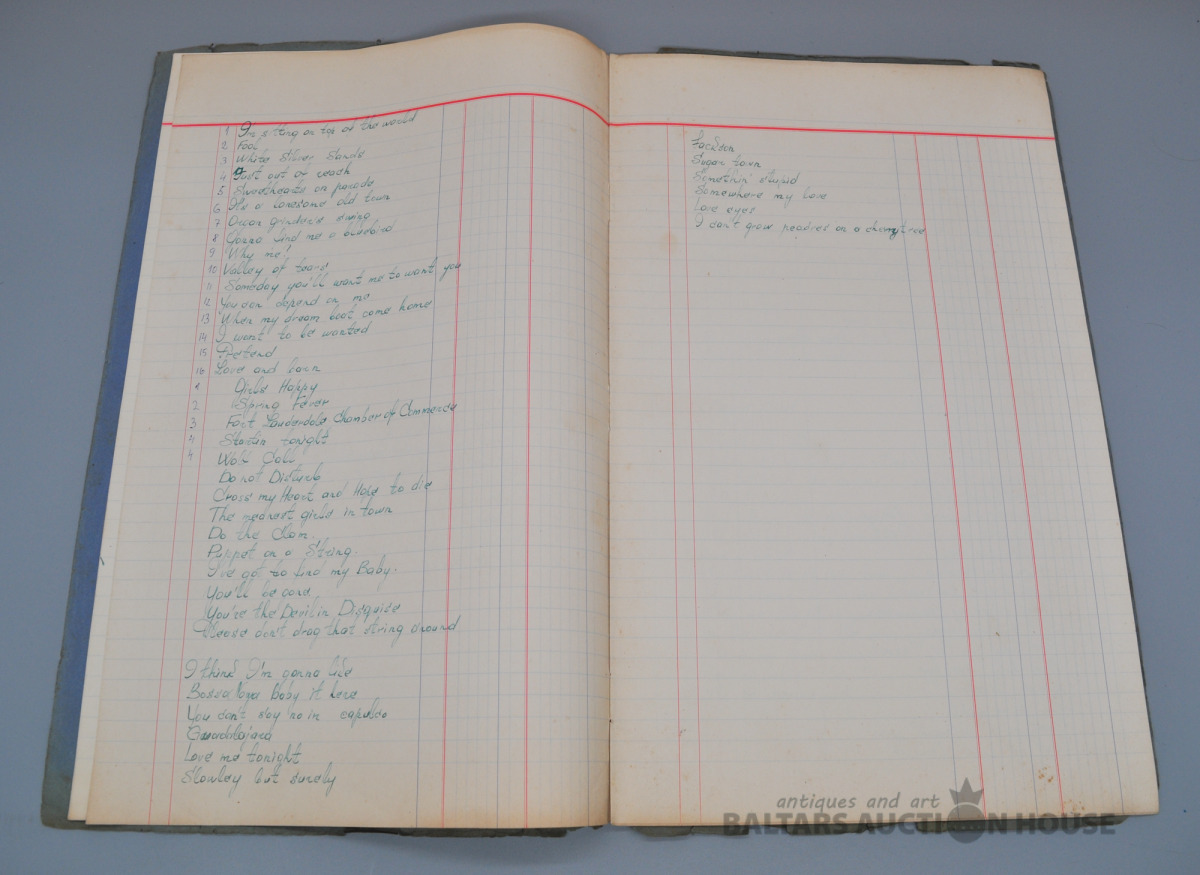 1 I'm sitting on top of the world
2 Fool
3 White Silver Sands
4 Just out of reach
5 Sweethearts on parade
6 It's a lonesome old town
7 Organ grinder's swing
8 Gonna find me a bluebird
9 Why me?
10 Valley of tears
11 Someday you'll want me to want you
12 You can depend on me
13 When my dream boat come home
14 I want to be wanted
15 Pretend
16 Love and learn
1 Girls Happy
2 Spring Fever
3 Fort Lauderdale Chamber of Commerce
4 Startin tonight
4 Wolf Call
Do not Disturb
Cross my Heart and Hope to die
The meanest girls in town
Do the Clam.
Puppet on a String.
I've got to find my Baby.
You'll be gone
You're the Devil in Disguise
Please don't drag that string around
I think I'm gonna like
Bossa Nova baby it here
You can't say no in
Guadalajara
Love me tonight
Slowley but surely
Jackson
Sugar town
Somethin' stupid
Somewhere my love
Love eyes
I don't grow on a cherry tree
antiques and art
BALTARS AUCTION HOUSE